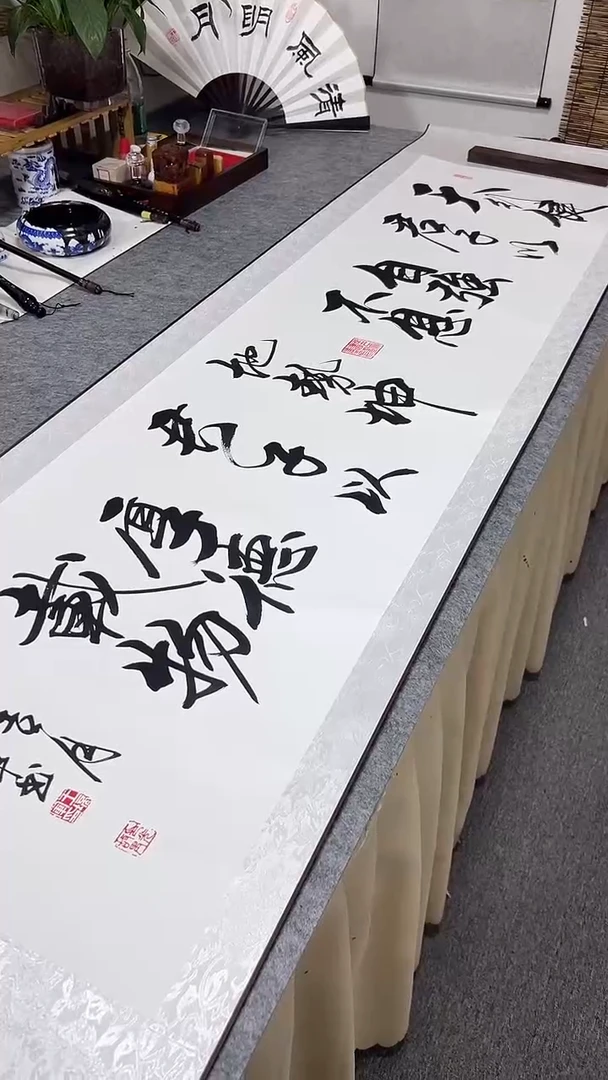 清風明月
天行健
君子以
自強
不息
地勢坤
君子以
厚德
載物